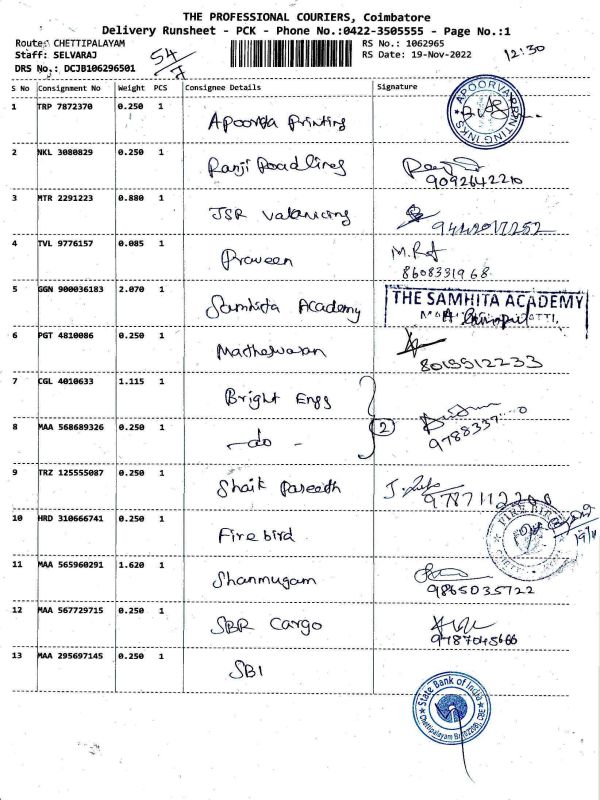 THE PROFESSIONAL COURIERS, Coimbatore
Delivery Runsheet - PCK - Phone No.:0422-3505555 - Page No.:1
Route: CHETTIPALAYAM
Staff: SELVARAJ
DRS No.: DCJB106296501
54/7
RS No.: 1062965
RS Date: 19-Nov-2022
12:30
S No Consignment No Weight PCS Consignee Details Signature
1 TRP 7872370 0.250 1 Apoorva Printing
APOORVA PRINTING INKS
2 NKL 3080829 0.250 1 Ranji Roadlines
9092642210
3 MTR 2291223 0.880 1 JSR Valanicing
9442017252
4 TVL 9776157 0.085 1 Praveen
8608331968
5 GGN 900036183 2.070 1 Samhita Academy THE SAMHITA ACADEMY
6 PGT 4810086 0.250 1 Matheswaran
8015512233
7 CGL 4010633 1.115 1 Bright Engg
8 MAA 568689326 0.250 1 -do- 2
9 TRZ 125555087 0.250 1 Shaik Pareeth
10 HRD 310666741 0.250 1 Firebird
FIRE BIRD
11 MAA 565960291 1.620 1 Shanmugam
9865035722
12 MAA 567729715 0.250 1 SBR Cargo
9787045666
13 MAA 295697145 0.250 1 SBI
State Bank of India
Chettipalayam